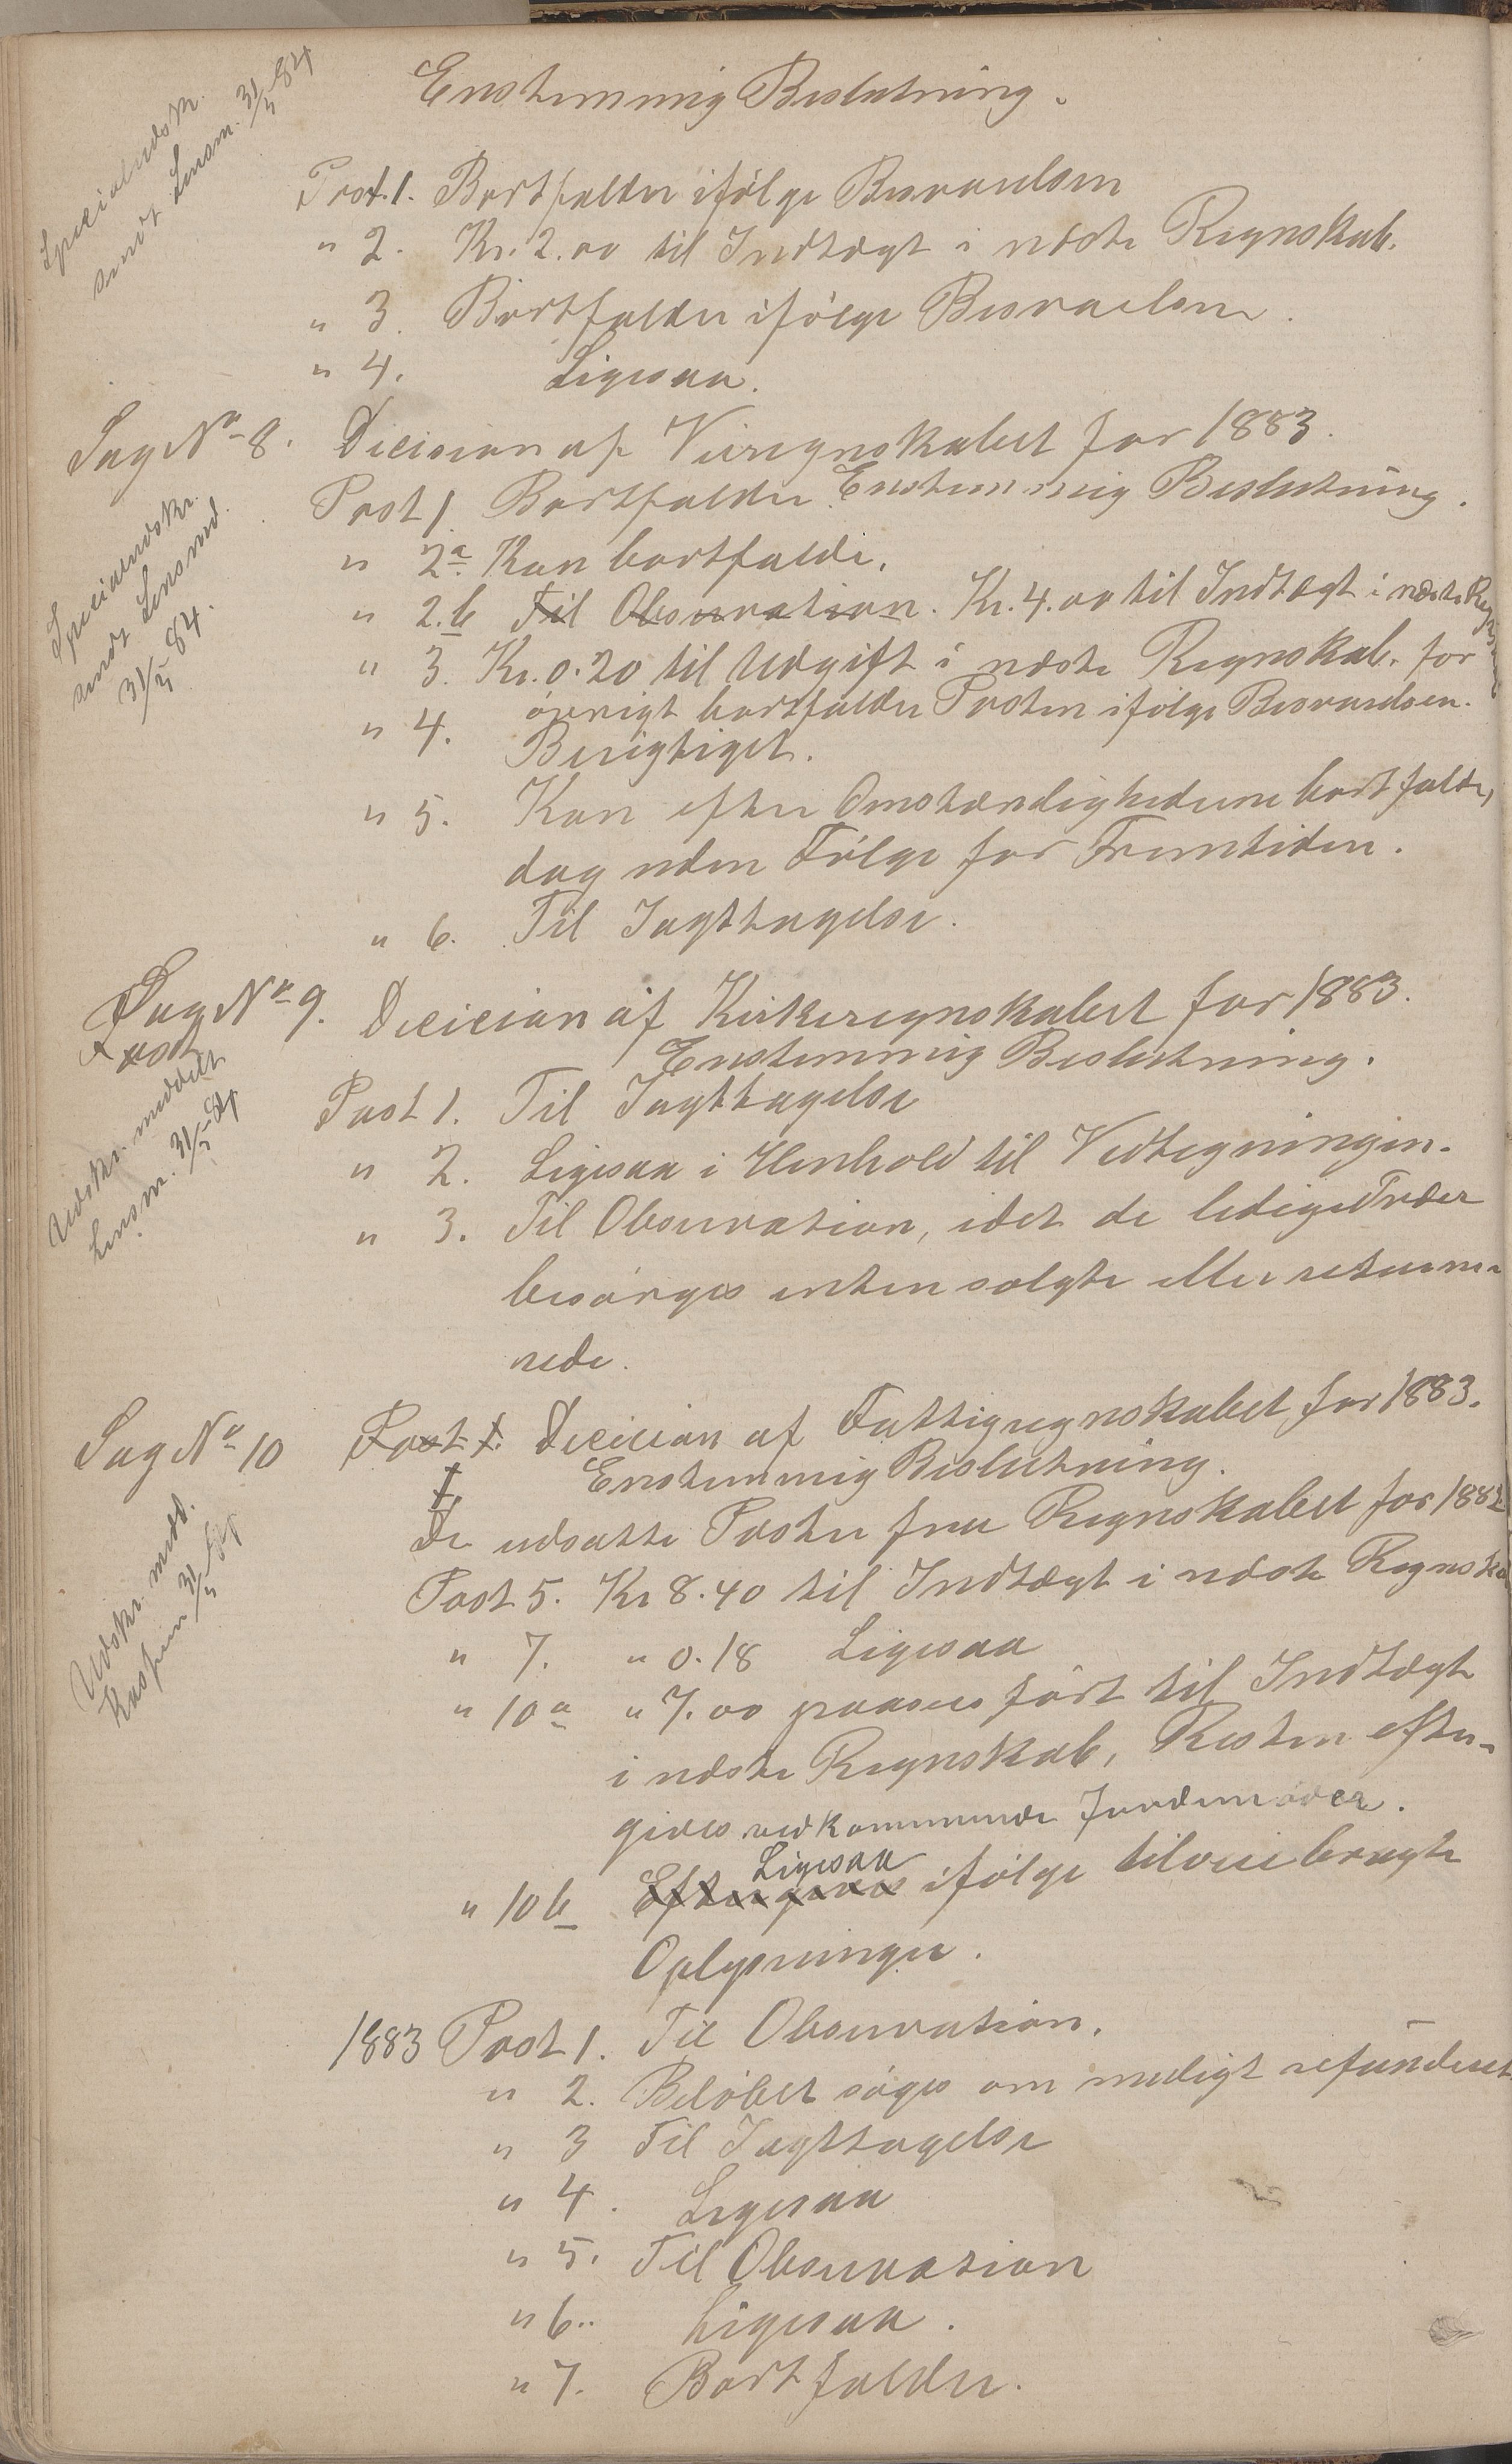 Enstemmig Beslutning.
Specialudskr.
sendt Lensm. 31/5 84
Post. 1. Bortfalder ifölge Besvarelsen
" 2. Kr. 2.00 til Indtægt i næste Regnskab.
" 3. Bortfalder ifölge Besvarelsen.
" 4. Ligesaa.
Sag No 8. Decision af Veiregnskabet for 1883.
Enstemmig Beslutning.
Specialudskr.
sendt Lensmd.
31/5 84.
Post 1. Bortfalder.
" 2a. Kan bortfalde.
" 2.b Til Observation. Kr. 4.00 til Indtægt i næste Regnskab
" 3. Kr. 0.20 til Udgift i næste Regnskab. for
övrigt bortfalder Posten ifölge Besvarelsen.
" 4. Berigtiget.
" 5. Kan efter Omstændighederne bortfalde,
dog uden Fölge for Fremtiden.
" 6. Til Iagttagelse.
Sag No 9. Decision af Kirkeregnskabet for 1883.
Post
Enstemmig Beslutning.
Udskr. meddelt
Lensm. 31/5 84
Post 1. Til Iagttagelse
" 2. Ligesaa i Henhold til Vedtegningen.
" 3. Til Observation, idet de ledige Fade
besörges enten solgte eller retuer-
nede.
Sag No 10 Post 1. Decision af Fattigregnskabet for 1883.
Enstemmig Beslutning.
Udskr. medd.
31/5 84
De udsatte Poster fra Regnskabet for 1882
Post 5. Kr 8.40 til Indtægt i næste Regnska
" 7. " 0.18 Ligesaa
" 10a " 7.00 paasees fört til Indtægt
i næste Regnskab, Resten efter-
gives vedkommende Jordemoder.
Ligesaa
" 10b Eftergives ifölge tilveiebragte
Oplysninger.
1883 Post 1. Til Observation.
" 2. Belöbet söges om muligt refunderet
" 3 Til Iagttagelse
" 4. Ligesaa
" 5. Til Observation
" 6.. Ligesaa.
" 7. Bortfalder.